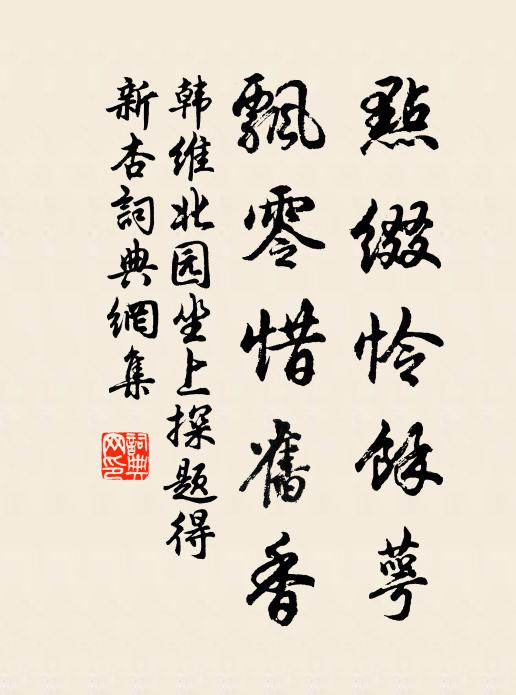 點綴怜餘萼
飄零惜舊香
韩維北园坐上探题得
新杏詞典網集
詞典网印